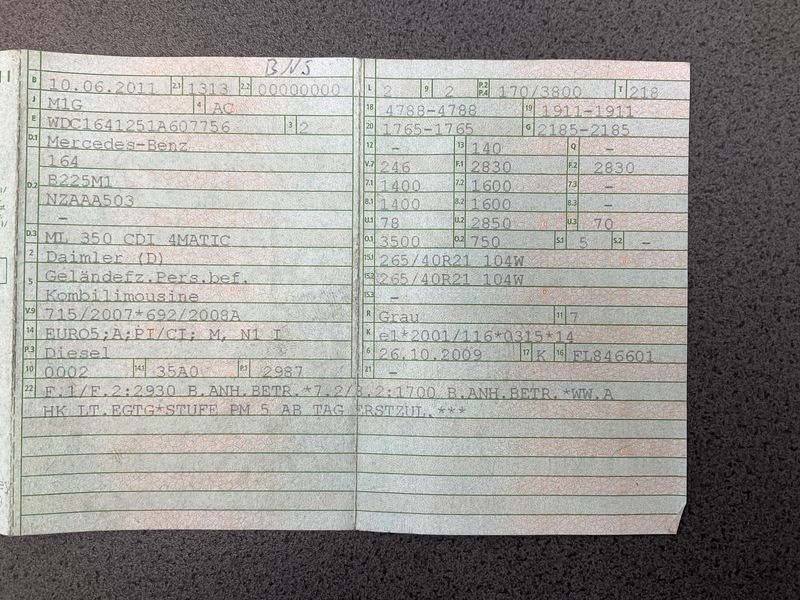 BNS
B 10.06.2011 2.1 1313 2.2 00000000
J M1G 4 AC
E WDC1641251A607756 3 2
D.1 Mercedes-Benz
164
D.2 B225M1
NZAAA503
–
D.3 ML 350 CDI 4MATIC
2 Daimler (D)
5 Geländefz.Pers.bef.
Kombilimousine
V.9 715/2007*692/2008A
14 EURO5;A;PI/CI; M, N1 I
P.3 Diesel
10 0002 14.1 35A0 P.1 2987
L 2 9 2 P.2 P.4 170/3800 T 218
18 4788-4788 19 1911-1911
20 1765-1765 G 2185-2185
12 – 13 140 Q –
V.7 246 F.1 2830 F.2 2830
7.1 1400 7.2 1600 7.3 –
8.1 1400 8.2 1600 8.3 –
U.1 78 U.2 2850 U.3 70
O.1 3500 O.2 750 S.1 5 S.2 –
15.1 265/40R21 104W
15.2 265/40R21 104W
15.3 –
R Grau 11 7
K e1*2001/116*0315*14
6 26.10.2009 17 K 16 FL846601
21 –
22 F.1/F.2:2930 B.ANH.BETR.*7.2/8.2:1700 B.ANH.BETR.*WW.A
HK LT.EGTG*STUFE PM 5 AB TAG ERSTZUL.***